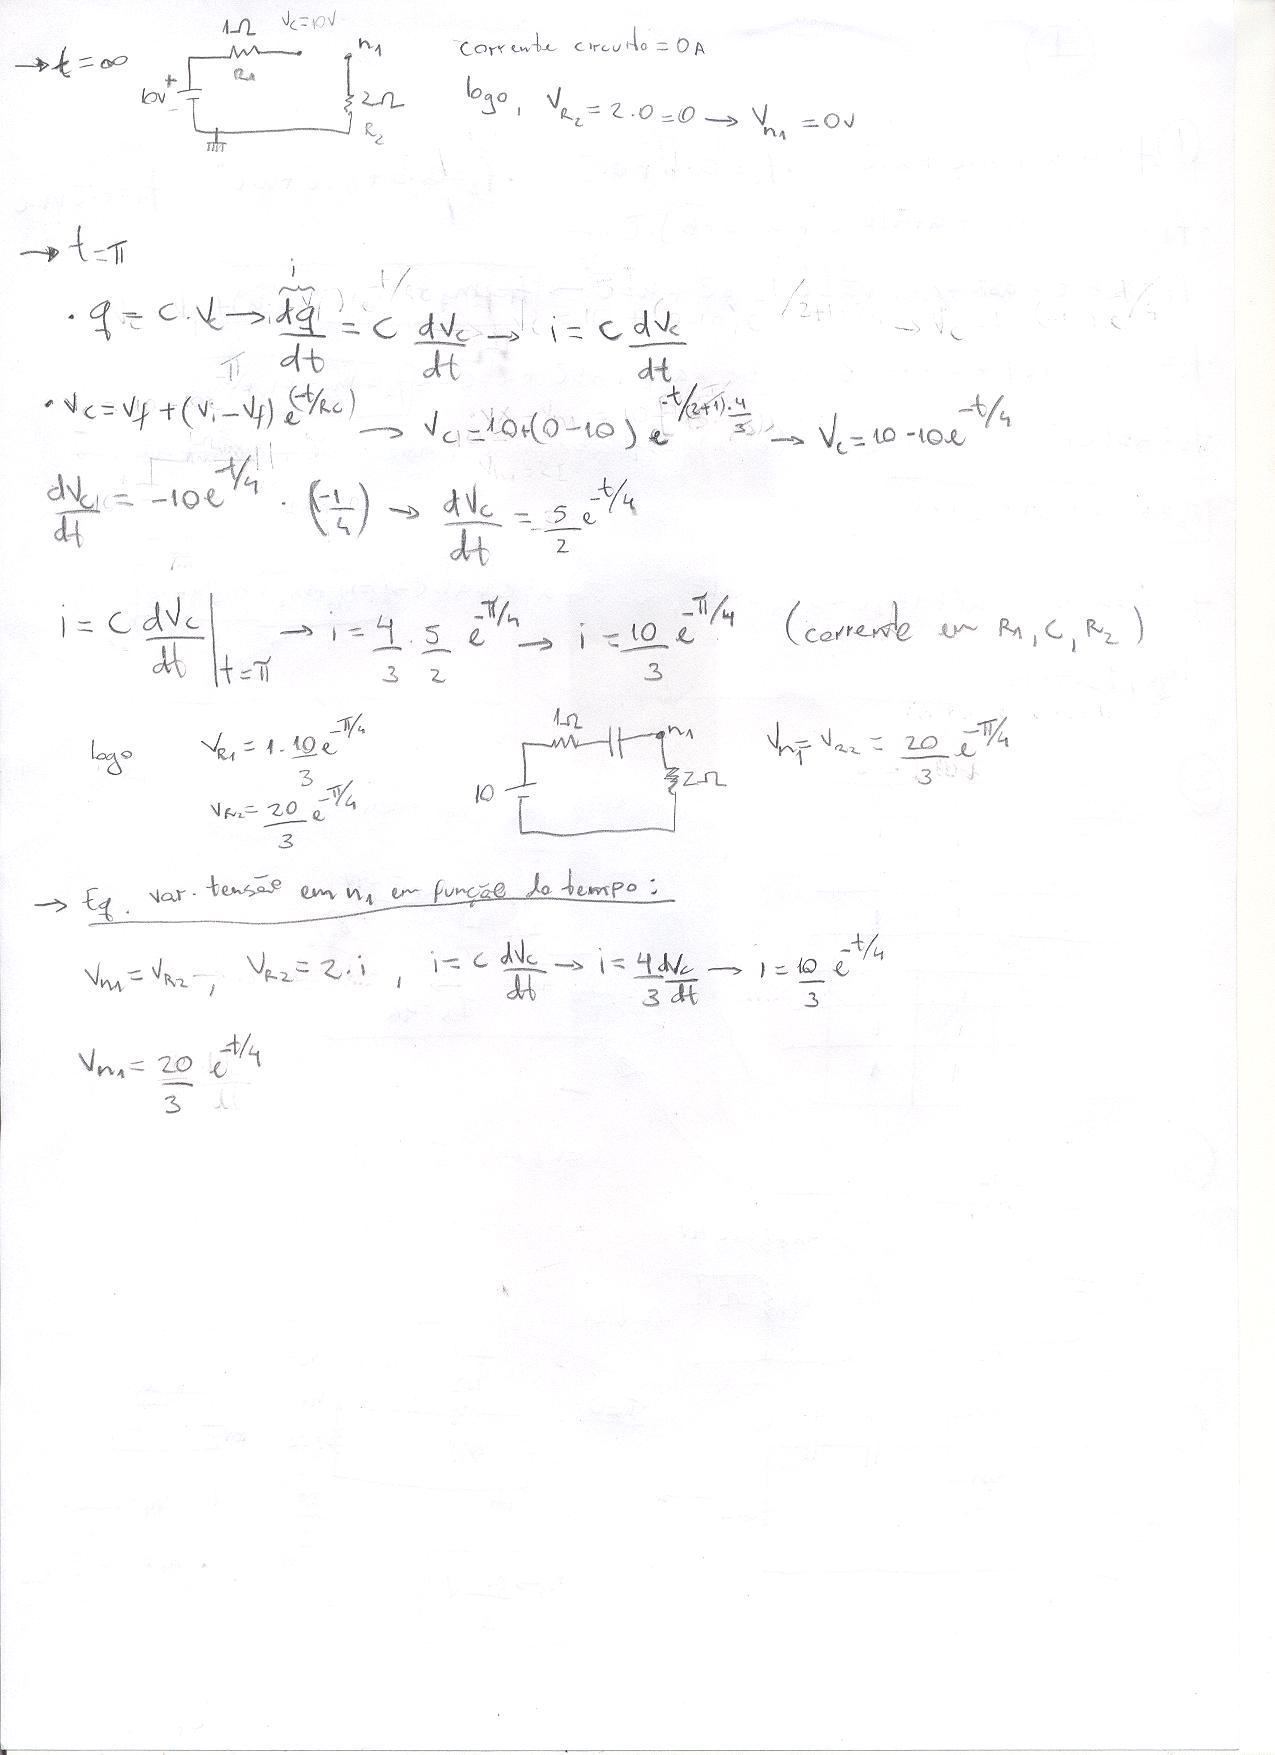 → t=∞
1Ω Vc=10V
R1
10V +
-
n1
2Ω
R2
corrente circuito = 0A
logo, VR2 = 2.0=0 → Vn1 = 0V
→ t=π
i
• q = C.Vc → dq/dt = C dVc/dt → i = C dVc/dt
• Vc = Vf + (Vi - Vf) e^(-t/RC) → Vc = 10+(0-10) e^(-t/(2+1).4/3) → Vc = 10-10e^(-t/4)
dVc/dt = -10e^(-t/4) . (-1/4) → dVc/dt = 5/2 e^(-t/4)
i = C dVc/dt | t=π → i = 4/3 . 5/2 e^(-π/4) → i = 10/3 e^(-π/4) (corrente em R1, C, R2)
logo VR1 = 1. 10/3 e^(-π/4)
VR2 = 20/3 e^(-π/4)
1Ω
n1
10
2Ω
Vn1 = VR2 = 20/3 e^(-π/4)
→ Eq. var. tensão em n1 em função do tempo:
Vn1 = VR2, VR2 = 2.i, i = C dVc/dt → i = 4/3 dVc/dt → i = 10/3 e^(-t/4)
Vn1 = 20/3 e^(-t/4)